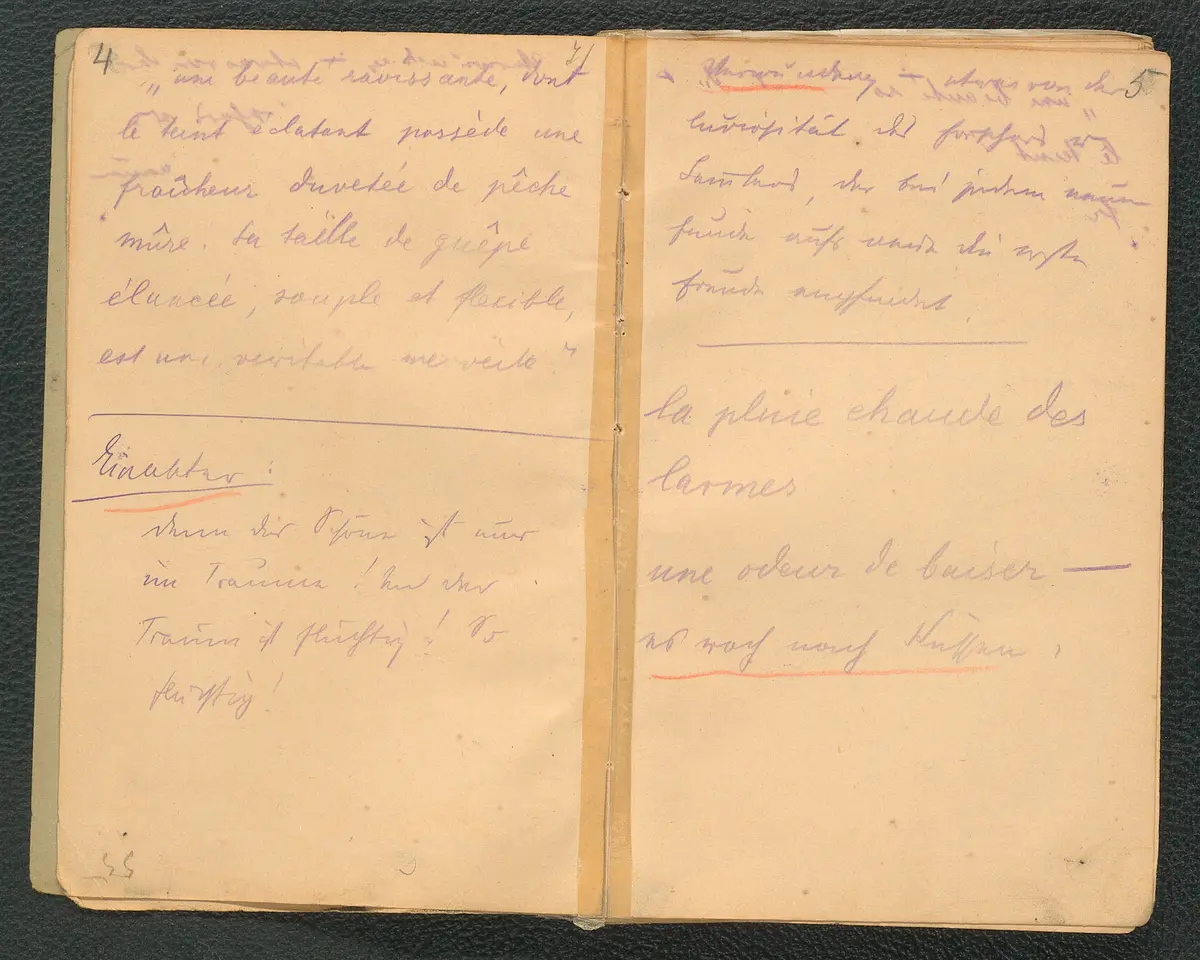 4
„une beauté ravissante, dont
le teint éclatant possède une
fraîcheur duvetée de pêche
mûre. Sa taille de guêpe
élancée, souple et flexible,
est une veritable merveile"
Einakter:
denn das Schöne ist nur
im Traume! Und der
Traum ist flüchtig! So
flüchtig!
5
etwas von der
Curiosität des Forschers
der bei jedem neuen
Funde aufs neue die erste
Freude empfindet
la pluie chaude des
larmes
une odeur de baiser —
es roch nach Küssen.